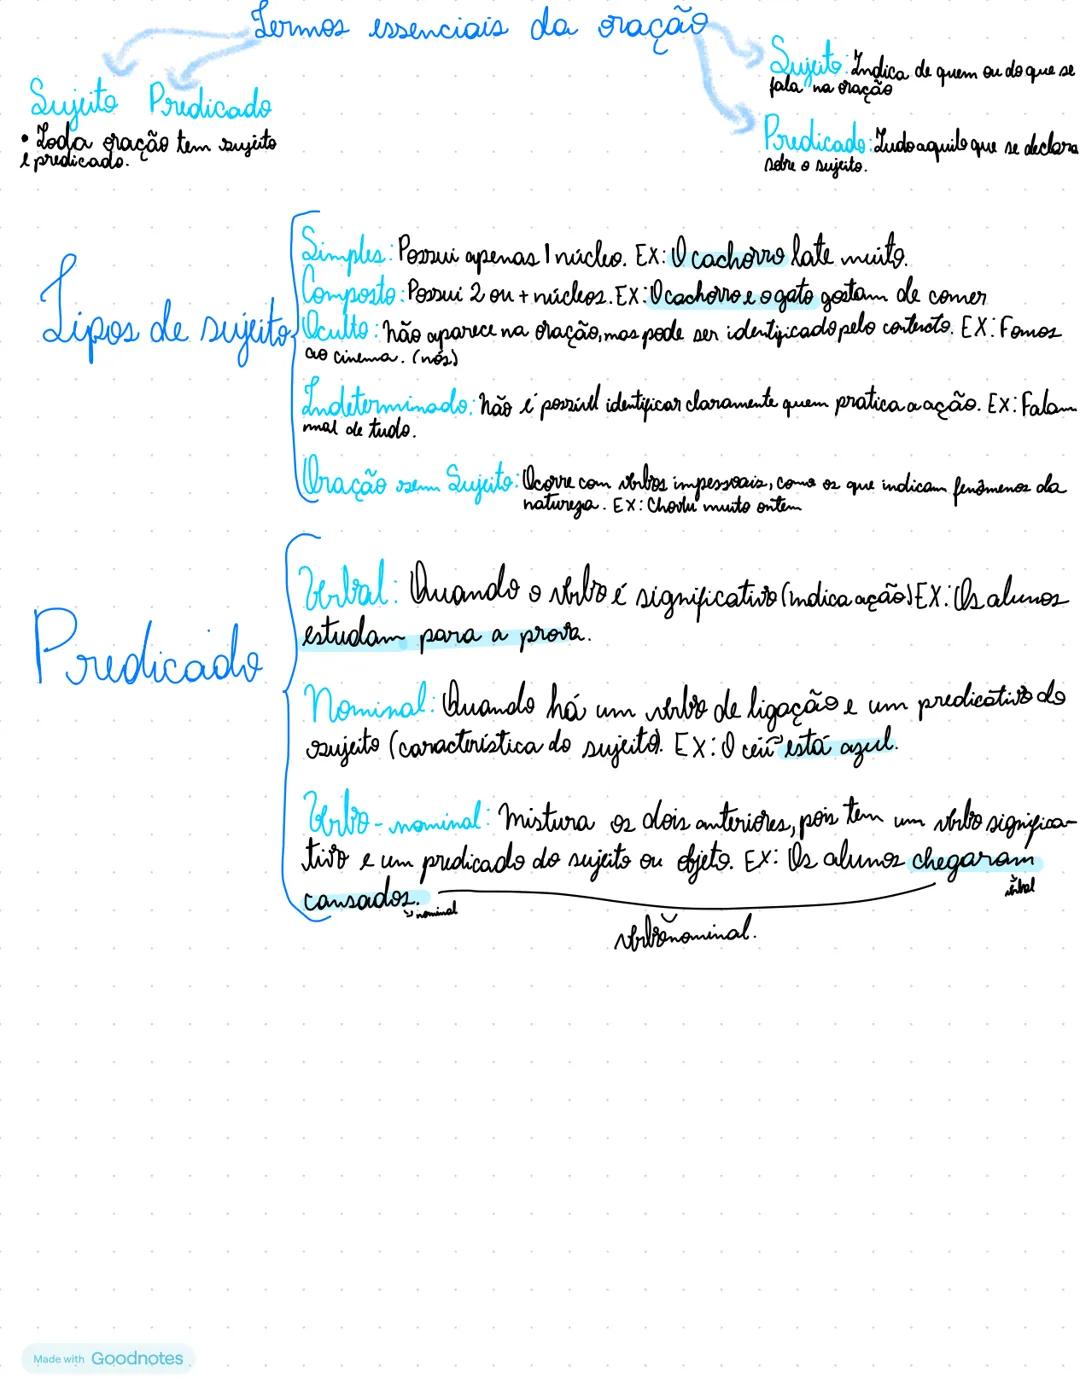 Termos essenciais da oração
Sujeito Predicado
• Toda oração tem sujeito
e predicado.
Sujeito: Indica de quem ou do que se
fala na oração
Predicado: Tudo aquilo que se declara
sobre o sujeito.
Tipos de sujeito
Simples: Possui apenas 1 núcleo. EX: O cachorro late muito.
Composto: Possui 2 ou + núcleos. EX: O cachorro e o gato gostam de comer
Oculto: não aparece na oração, mas pode ser identificado pelo contexto. EX: Fomos
ao cinema. (nós)
Indeterminado: não é possível identificar claramente quem pratica a ação. EX: Falam
mal de tudo.
Oração sem Sujeito: Ocorre com verbos impessoais, como os que indicam fenômenos da
natureza. EX: Choveu muito ontem
Predicado
Verbal: Quando o verbo é significativo (indica ação) EX: Os alunos
estudam para a prova.
Nominal: Quando há um verbo de ligação e um predicativo do
sujeito (característica do sujeito). EX: O céu está azul.
Verbo-nominal: Mistura os dois anteriores, pois tem um verbo significa-
tivo e um predicado do sujeito ou objeto. EX: Os alunos chegaram
verbal
cansados.
nominal
verbonominal.
Made with Goodnotes